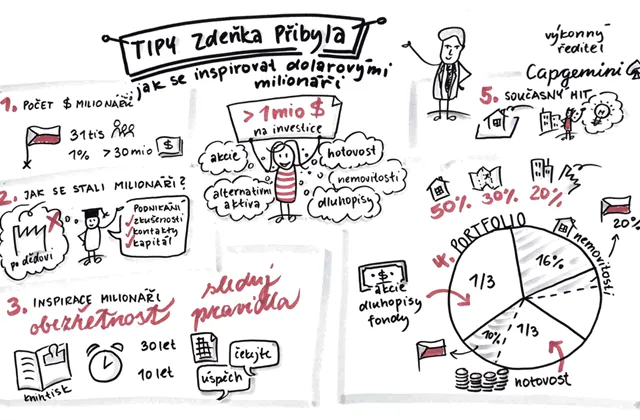 TIPY Zdeňka Přibyla
jak se inspirovat dolarovými
milionáři
výkonný
ředitel
Capgemini
1. POČET $ MILIONÁŘŮ
31 tis
1% >30 mio $
> 1 mio $
na investice
akcie
hotovost
nemovitosti
alternativní
aktiva
dluhopisy
2. JAK SE STALI MILIONÁŘI?
po dědovi
PODNIKÁNÍ
zkušenosti
kontakty
kapitál
3. INSPIRACE MILIONÁŘI
obezřetnost
sleduj
pravidla
knihtisk
30 let
10 let
čekejte
úspěch
4. PORTFOLIO
1/3
16%
nemovitosti
20%
akcie
dluhopisy
fondy
10%
1/3
hotovost
5. SOUČASNÝ HIT
50% 30% 20%